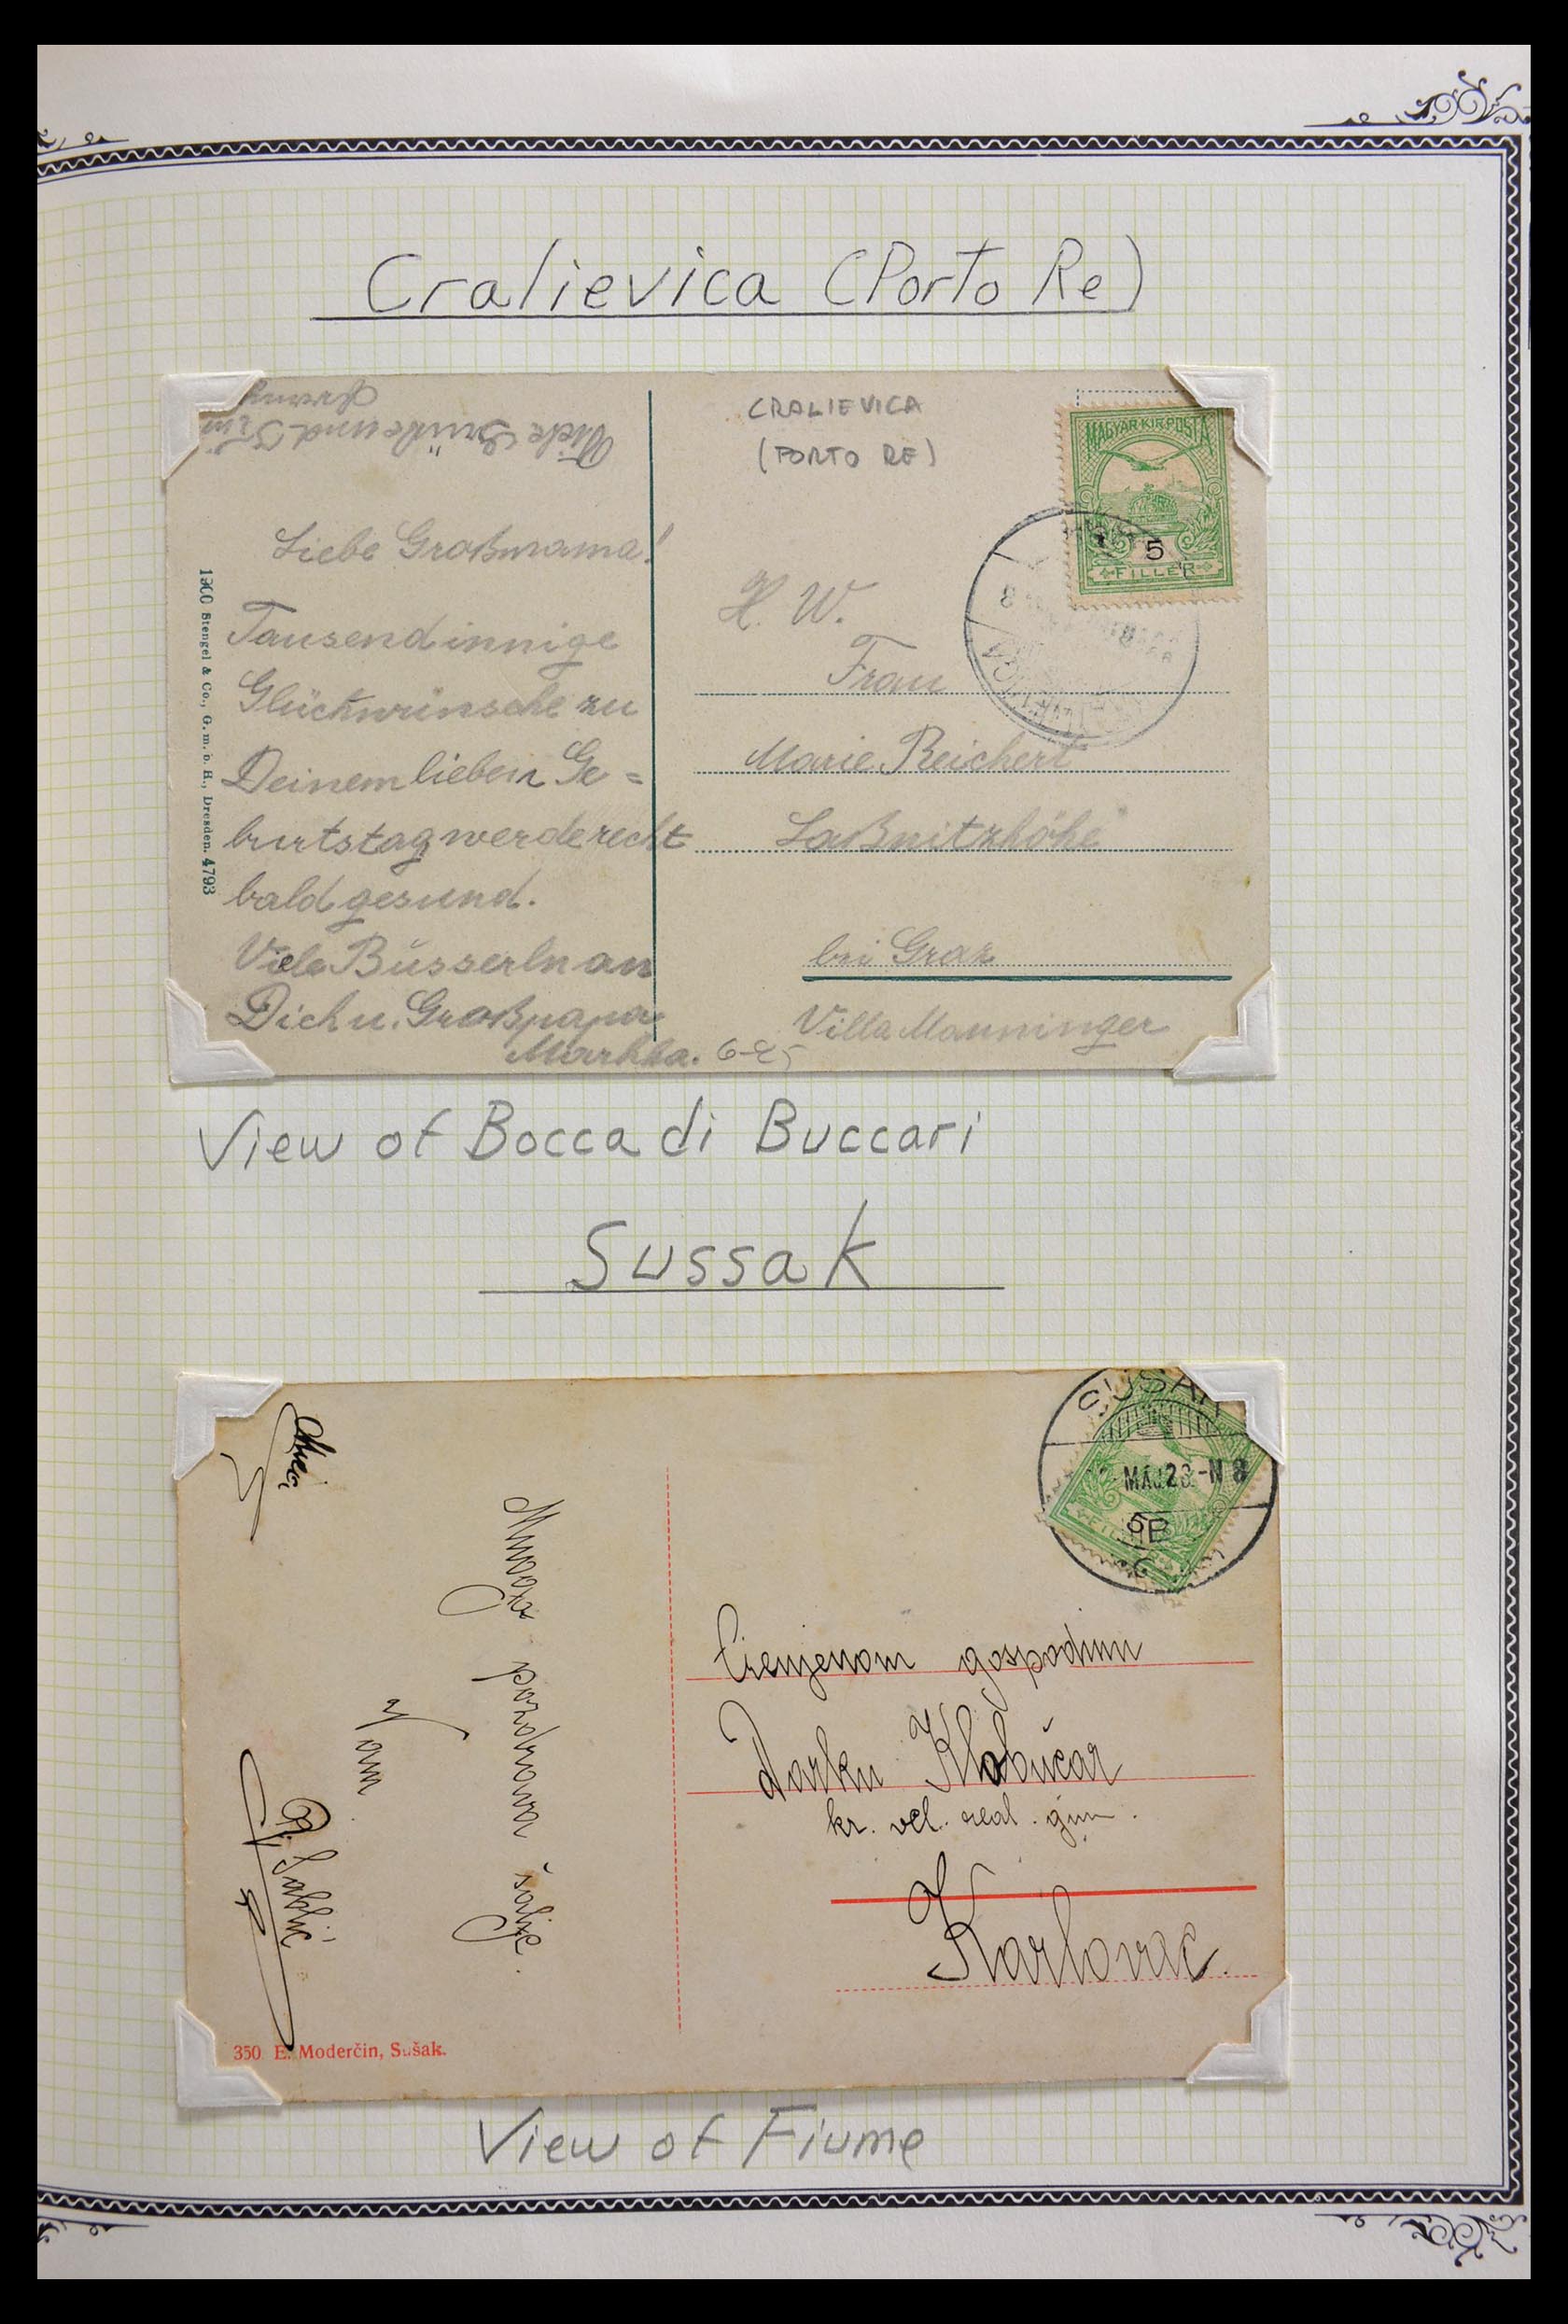 Cralievica (Porto Re)
CRALIEVICA
(PORTO RE)
MAGYAR KIR. POSTA
5
FILLÉR
Viele Grüße und
Liebe Großmama!
Tausend innige
Glückwünsche zu
Deinem lieben Ge=
burtstag werde recht
bald gesund.
Viele Busserln an
Dich u. Großpapa
6-25
1900 Stengel & Co., G. m. b. H., Dresden. 4793
H. W.
Frau
Marie Reichert
Laßnitzhöhe
bei Graz
Villa Manninger
View of Bocca di Buccari
Sussak
SUSAK
MAJ 23.-N 8
5
FILLÉR
Mnogo pozdrava šalje
Vam
350 E. Moderčin, Sušak.
Cienjenom gospodinu
Darku Klobučar
kr. vel. real. gim.
Karlovac.
View of Fiume